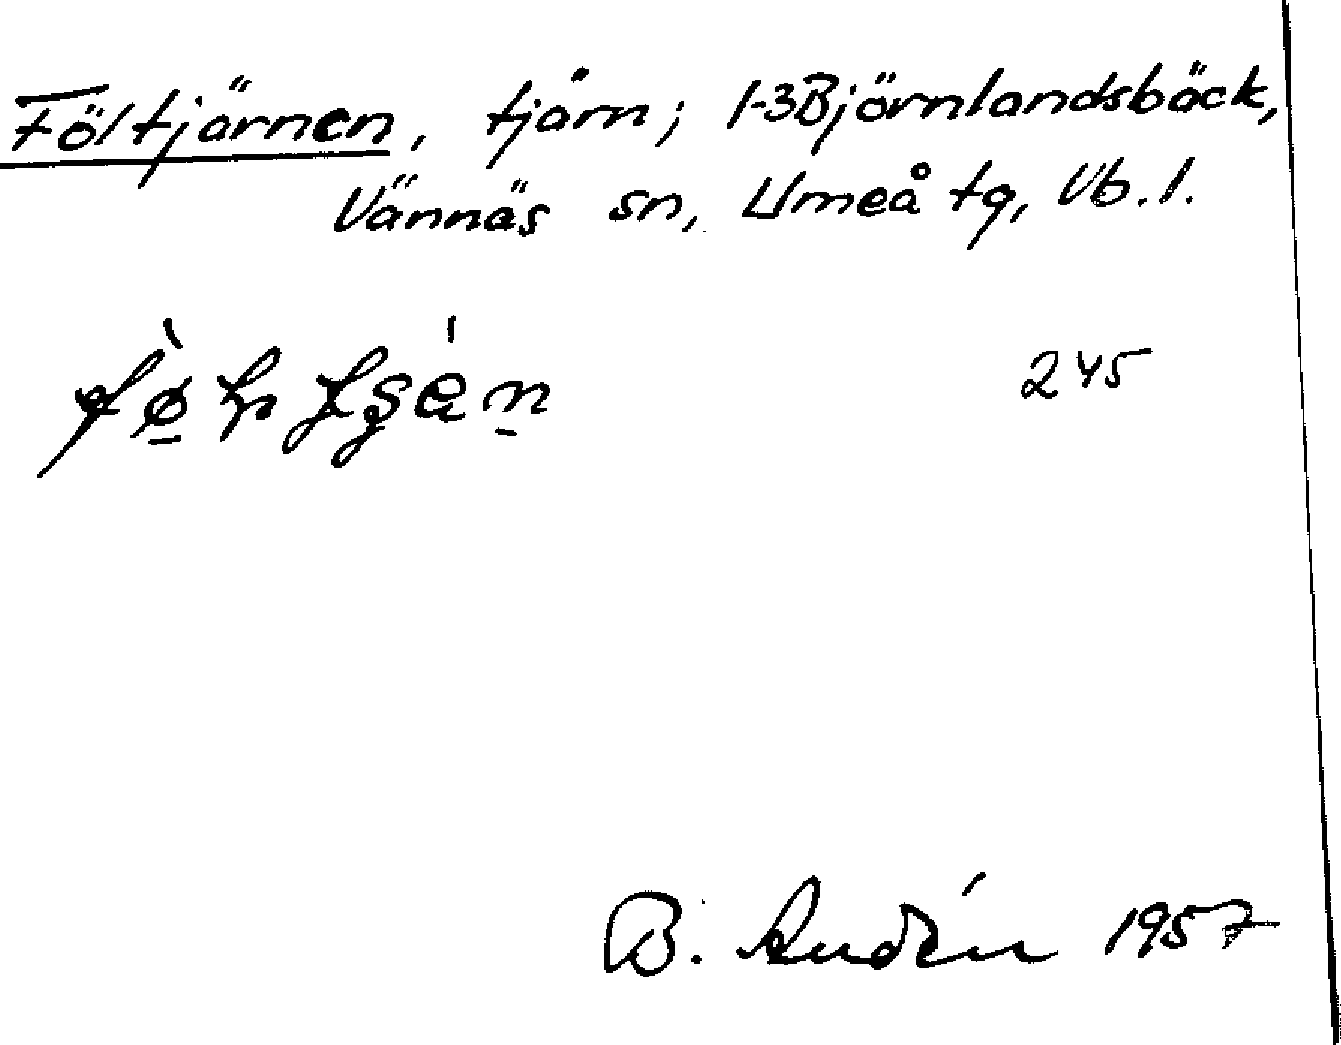 Följtjärnen, tjärn; 1-3 Björnlandsbäck,
Vännäs sn, Umeå tg, Vb. l.
245
B. Rudén 1957